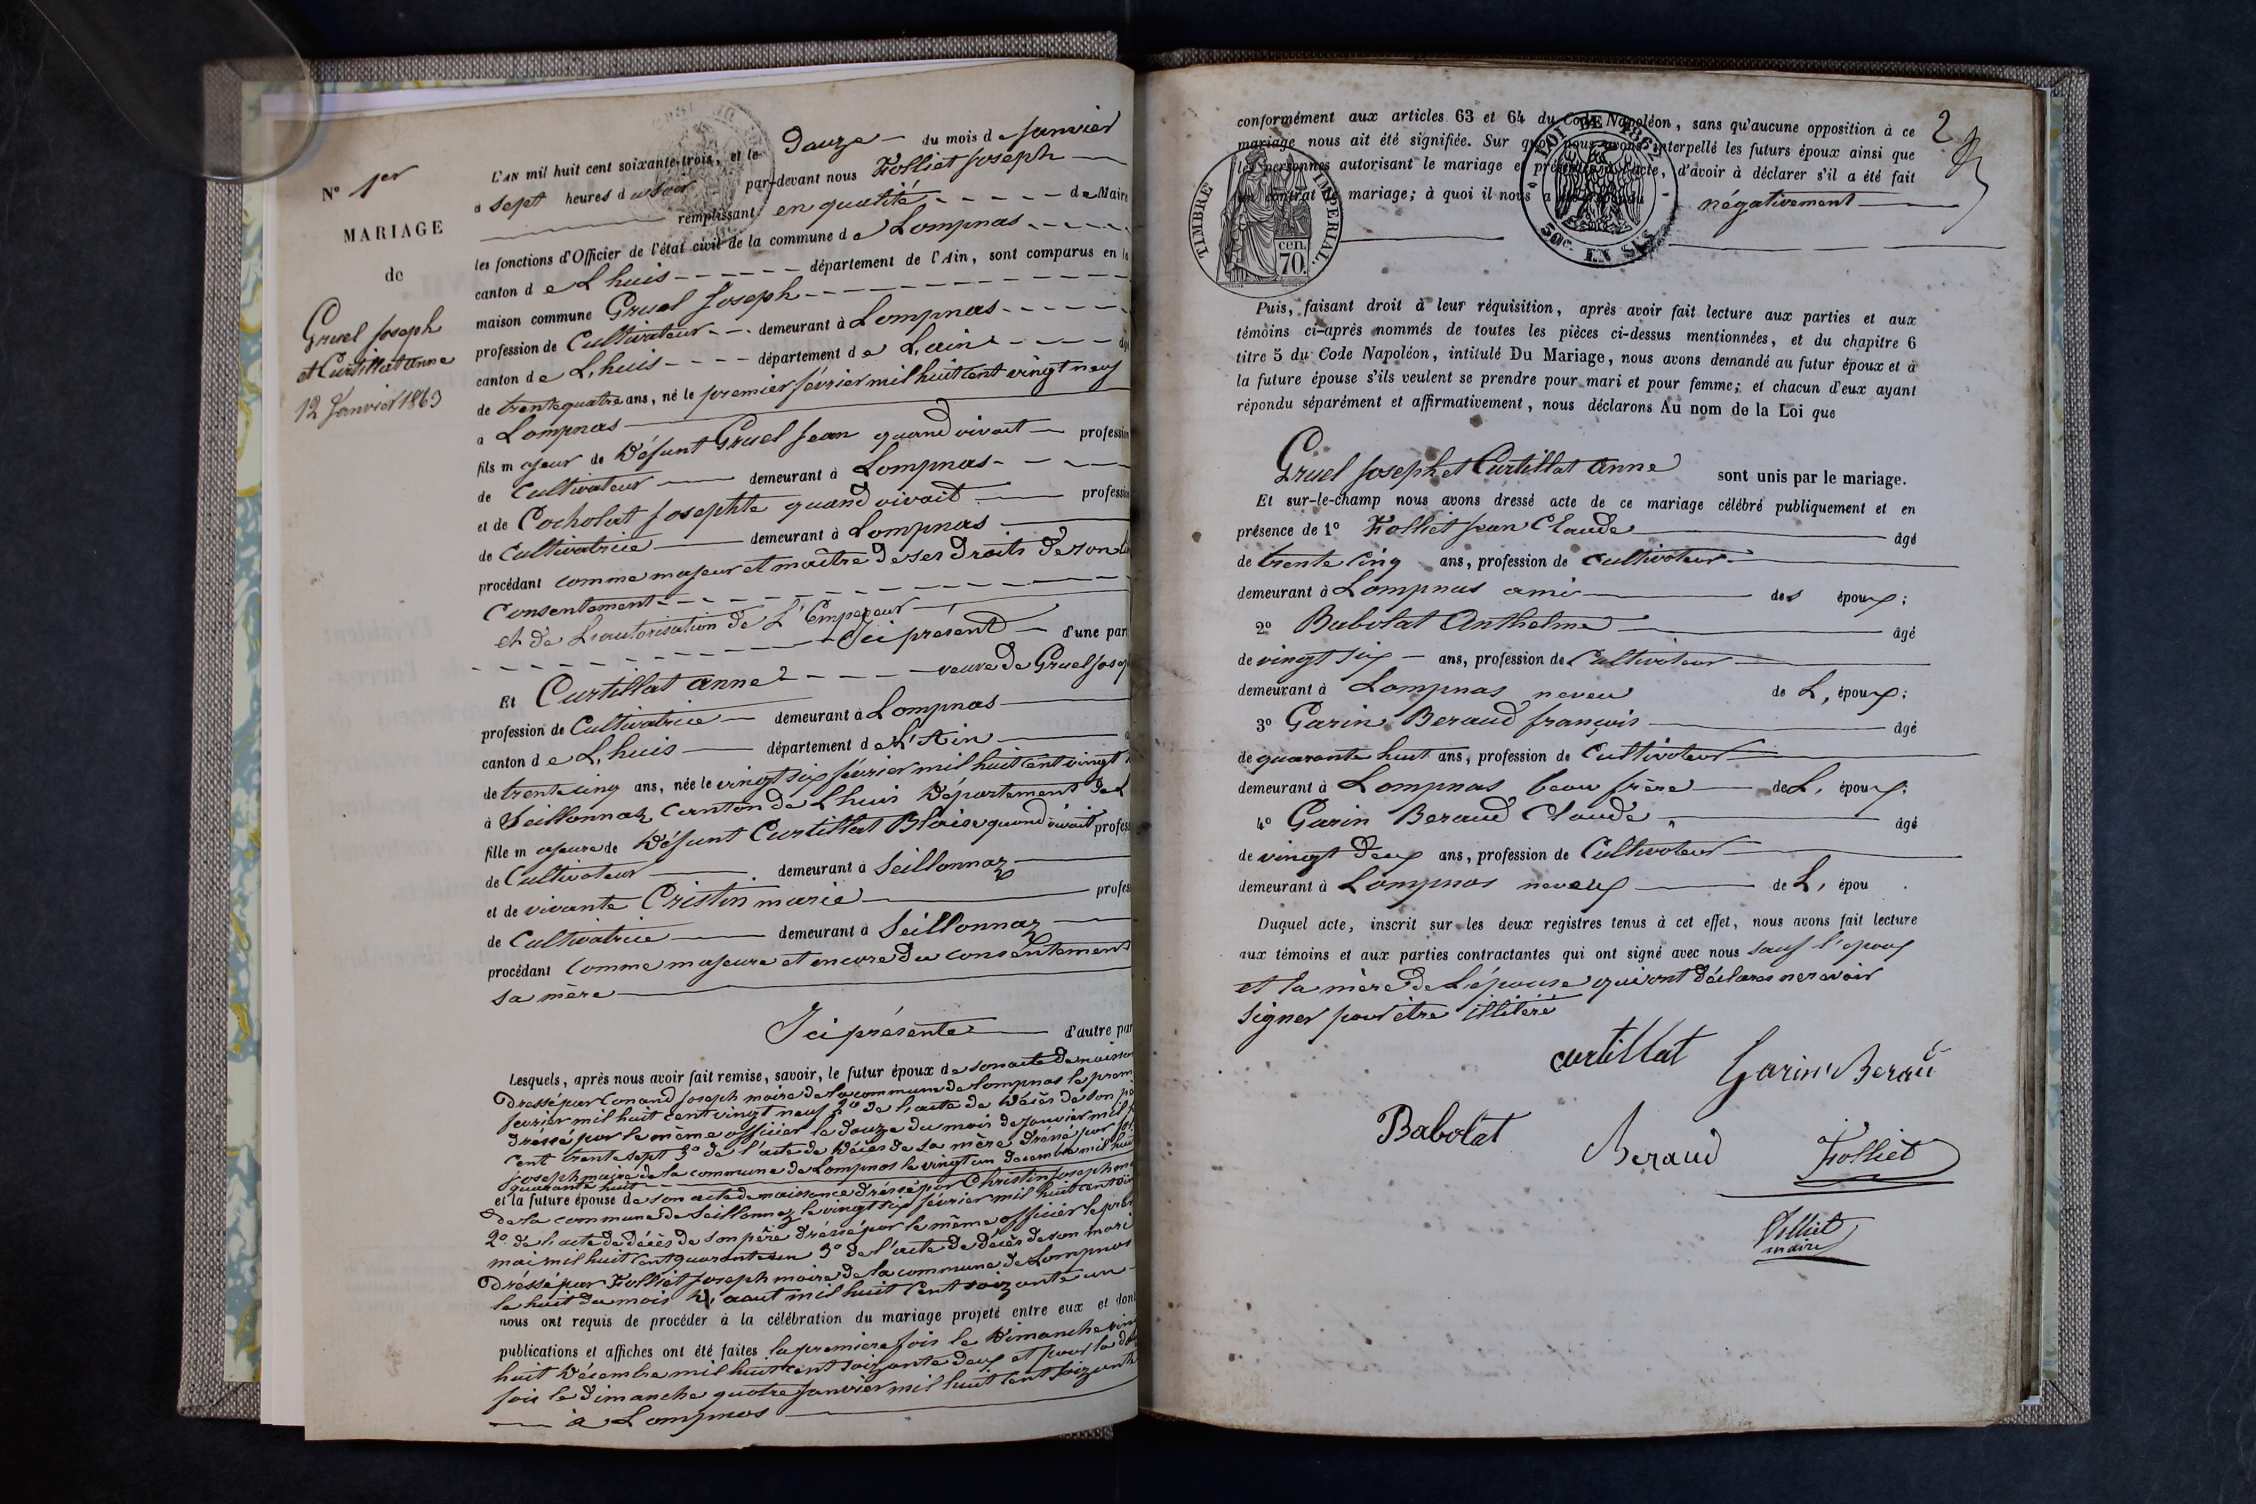 N° 1er
MARIAGE
de
Gruel Joseph
et Curtillat anne
12 Janvier 1863
L'AN mil huit cent soixante-trois, et le Douze du mois de Janvier
à sept heures du soir par-devant nous Folliet Joseph
remplissant en qualité de Maire
les fonctions d'Officier de l'état civil de la commune de Lompnas
canton de Lhuis département de l'Ain, sont comparus en la
maison commune Gruel Joseph
profession de Cultivateur demeurant à Lompnas
canton de L,huis département de L,ain âgé
de trente quatre ans, né le premier février mil huit cent vingt neuf
à Lompnas
fils majeur de Défunt Gruel Jean quand vivait profession
de Cultivateur demeurant à Lompnas
et de Cocholat Josephte quand vivait profession
de Cultivatrice demeurant à Lompnas
procédant comme majeur et maître de ses droits de son
Consentement
et de L'autorisation de L'Empereur
Ici présent d'une part
Et Curtillat anne veuve de Gruel Josep
profession de Cultivatrice demeurant à Lompnas
canton de L,huis département de L'Ain
de trente cinq ans, née le vingt six février mil huit cent vingt
à Seillonnaz Canton de Lhuis Département de L
fille majeure de Défunt Curtillat Blaise quand vivait profess
de Cultivateur demeurant à Seillonnaz
et de vivante Cristin marie profes
de Cultivatrice demeurant à Seillonnaz
procédant Comme majeure et encore du consentement
sa mère
Ici présente d'autre par
Lesquels, après nous avoir fait remise, savoir, le futur époux de son acte de naissan
Dressé par Conand Joseph maire de la commune de Lompnas le prem
février mil huit cent vingt neuf 2° de l'acte de Décès de son pè
dréssé par le même officier le douze du mois de Janvier mil h
cent trente sept 3° de l'acte de Décès de sa mère dréssé par
Joseph maire de la commune de Lompnas le vingt un decembre mil huit
quarante huit
et la future épouse de son acte de naissance dréssé par Christin Joseph m
de la commune de Seillonnaz le vingt six février mil huit cent
2° de l'acte de décès de son père dréssé par le même officier le
mai mil huit cent quarante un 3° de l'acte de décès de son mari
Dréssé par Folliet Joseph maire de la commune de Lompnas
le huit du mois d'aout mil huit cent soixante un
nous ont requis de procéder à la célébration du mariage projeté entre eux et dont
publications et affiches ont été faites la premiere fois le Dimanche vin
huit Décembre mil huit cent soixante deux et pour la
fois le Dimanche quatre Janvier mil huit cent soixante
à Lompnas
2
conformément aux articles 63 et 64 du Code Napoléon, sans qu'aucune opposition à ce
mariage nous ait été signifiée. Sur quoi nous avons interpellé les futurs époux ainsi que
les personnes autorisant le mariage et présentes à l'acte, d'avoir à déclarer s'il a été fait
un contrat de mariage; à quoi il nous a été répondu négativement
TIMBRE IMPÉRIAL.
70.
cen.
LOI DE 1862
50c. EN SUS
Puis, faisant droit à leur réquisition, après avoir fait lecture aux parties et aux
témoins ci-après nommés de toutes les pièces ci-dessus mentionnées, et du chapitre 6
titre 5 du Code Napoléon, intitulé Du Mariage, nous avons demandé au futur époux et à
la future épouse s'ils veulent se prendre pour mari et pour femme; et chacun d'eux ayant
répondu séparément et affirmativement, nous déclarons Au nom de la Loi que
Gruel Joseph et Curtillat anne sont unis par le mariage.
Et sur-le-champ nous avons dressé acte de ce mariage célébré publiquement et en
présence de 1° Folliet Jean Claude âgé
de trente cinq ans, profession de cultivateur
demeurant à Lompnas ami des époux;
2° Babolat Anthelme âgé
de vingt six ans, profession de Cultivateur
demeurant à Lompnas neveu de L, époux;
3° Garin Beraud françois âgé
de quarante huit ans, profession de Cultivateur
demeurant à Lompnas beau frère de L, époux;
4° Garin Beraud Claude âgé
de vingt deux ans, profession de Cultivateur
demeurant à Lompnas neveux de L, épou .
Duquel acte, inscrit sur les deux registres tenus à cet effet, nous avons fait lecture
aux témoins et aux parties contractantes qui ont signé avec nous sauf l'epoux
et la mère de L'épouse qui ont déclarés ne savoir
signer pour être illitéré
curtillat Garin Berau
Babolat Beraud Folliet
Folliet
maire